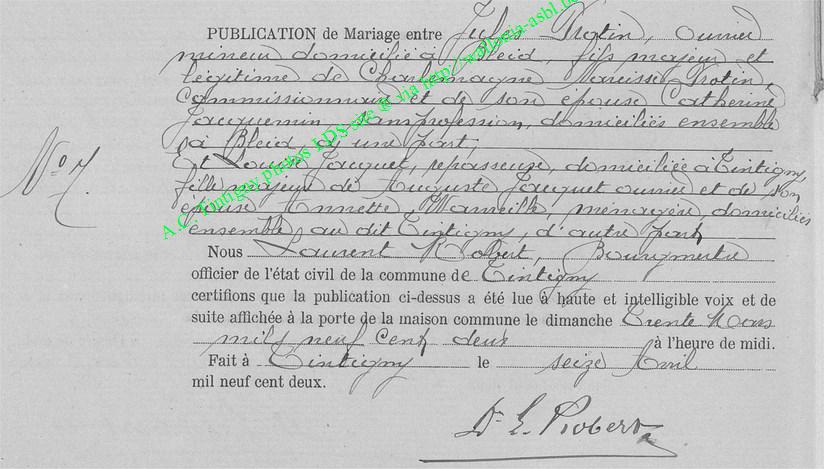 PUBLICATION de Mariage entre Jules Protin, ouvrier
mineur domicilié à Bleid, fils majeur et
légitime de Charlemagne Narcisse Protin,
Commissionnaire et de son épouse Catherine
Jacquemin, sans profession, domiciliés ensemble
à Bleid, d'une part,
Et Louise Jacquet, repasseuse, domiciliée à Tintigny,
fille majeur de Auguste Jacquet ouvrier et de son
épouse Annette Warneille, ménagère, domiciliés
ensemble au dit Tintigny, d'autre part
No 7.
Nous Laurent Robert, Bourgmestre
officier de l'état civil de la commune de Tintigny
certifions que la publication ci-dessus a été lue à haute et intelligible voix et de
suite affichée à la porte de la maison commune le dimanche trente Mars
mil neuf cent deux à l'heure de midi.
Fait à Tintigny le seize Avril
mil neuf cent deux.
Dr L. Robert
A.C. Tintigny photos LDS site @ via http://wallonia-asbl.b